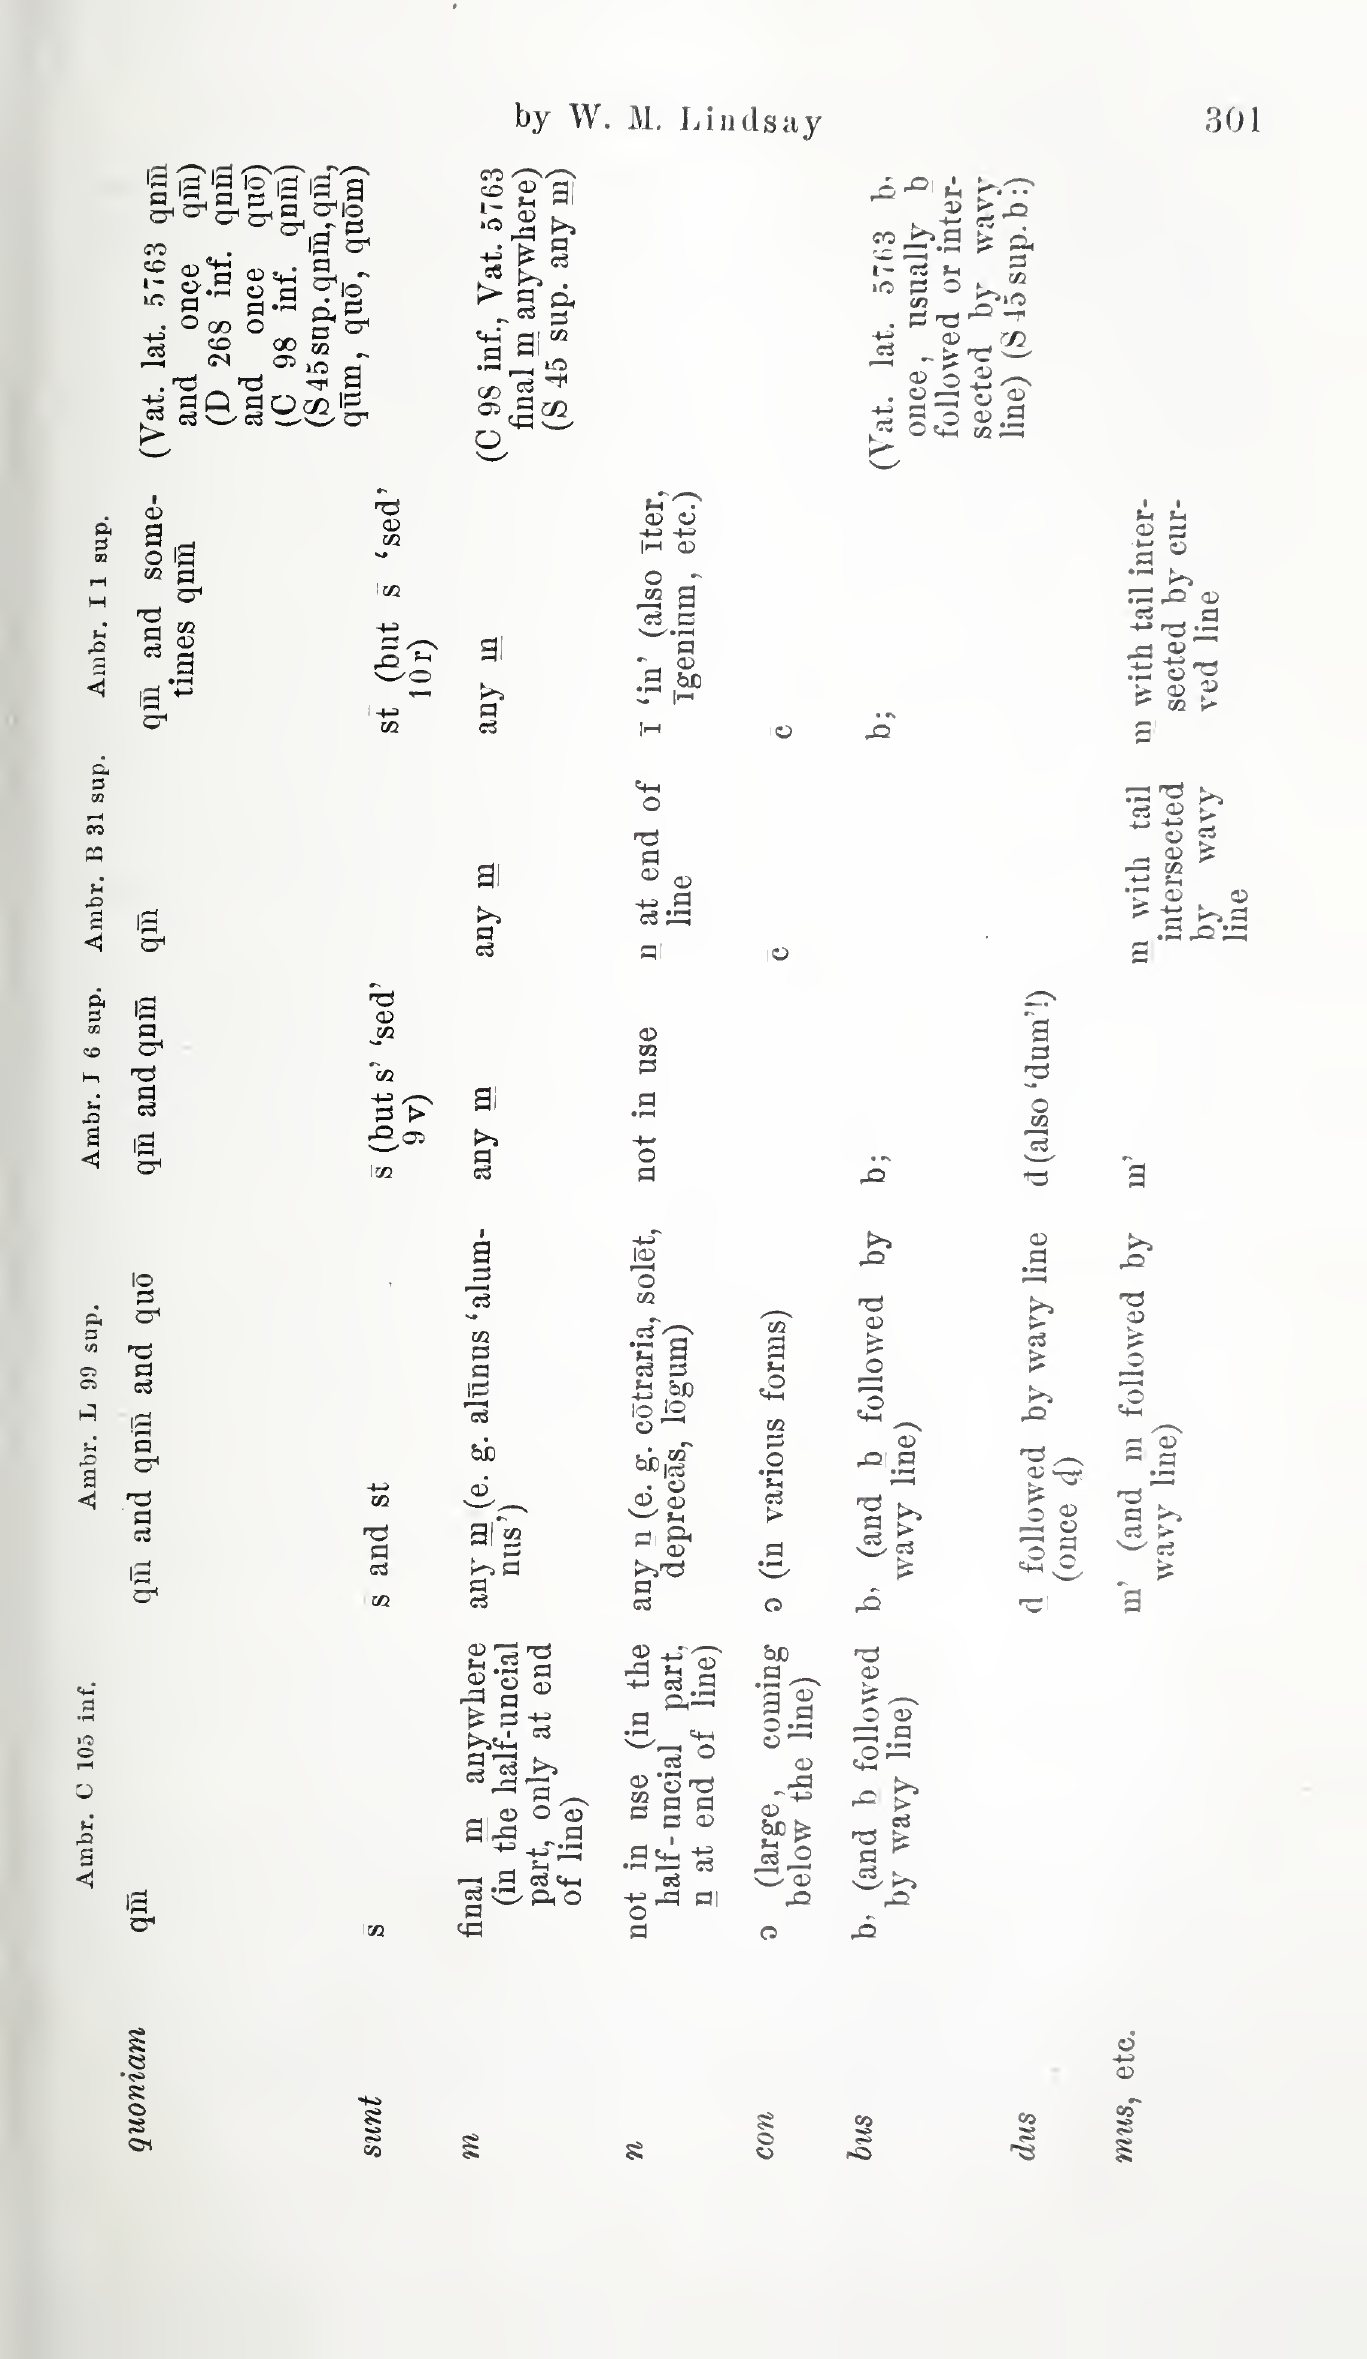 by W. M. Lindsay 301
Ambr. C 105 inf. Ambr. L 99 sup. Ambr. J 6 sup. Ambr. B 31 sup. Ambr. I 1 sup.
quoniam
qm̄
qm̄ and qnm̄ and quō
qm̄ and qnm̄
qm̄
qm̄ and some-
times qnm̄
(Vat. lat. 5763 qnm̄
and once qm̄)
(D 268 inf. qnm̄
and once quō)
(C 98 inf. qnm̄)
(S 45 sup. qnm̄, qm̄,
qūm, quō, quōm)
sunt
s̄
s̄ and st
s̄ (but s’ ‘sed’
9 v)
st̄ (but s̄ ‘sed’
10 r)
m
final m̲ anywhere
(in the half-uncial
part, only at end
of line)
any m̲ (e. g. alūnus ‘alum-
nus’)
any m̲
any m̲
any m̲
(C 98 inf., Vat. 5763
final m̲ anywhere)
(S 45 sup. any m̲)
n
not in use (in the
half-uncial part,
n̲ at end of line)
any n̲ (e. g. cōtraria, solēt,
deprecās, lōgum)
not in use
n̲ at end of
line
ī ‘in’ (also īter,
īgenium, etc.)
con
ɔ (large, coming
below the line)
ɔ (in various forms)
c̄
c
bus
b, (and b̲ followed
by wavy line)
b, (and b̲ followed by
wavy line)
b;
b;
(Vat. lat. 5763 b,
once, usually b̲
followed or inter-
sected by wavy
line) (S 45 sup. b:)
dus
d̲ followed by wavy line
(once d̨)
d (also ‘dum’!)
mus, etc.
m’ (and m followed by
wavy line)
m’
m with tail
intersected
by wavy
line
m with tail inter-
sected by cur-
ved line